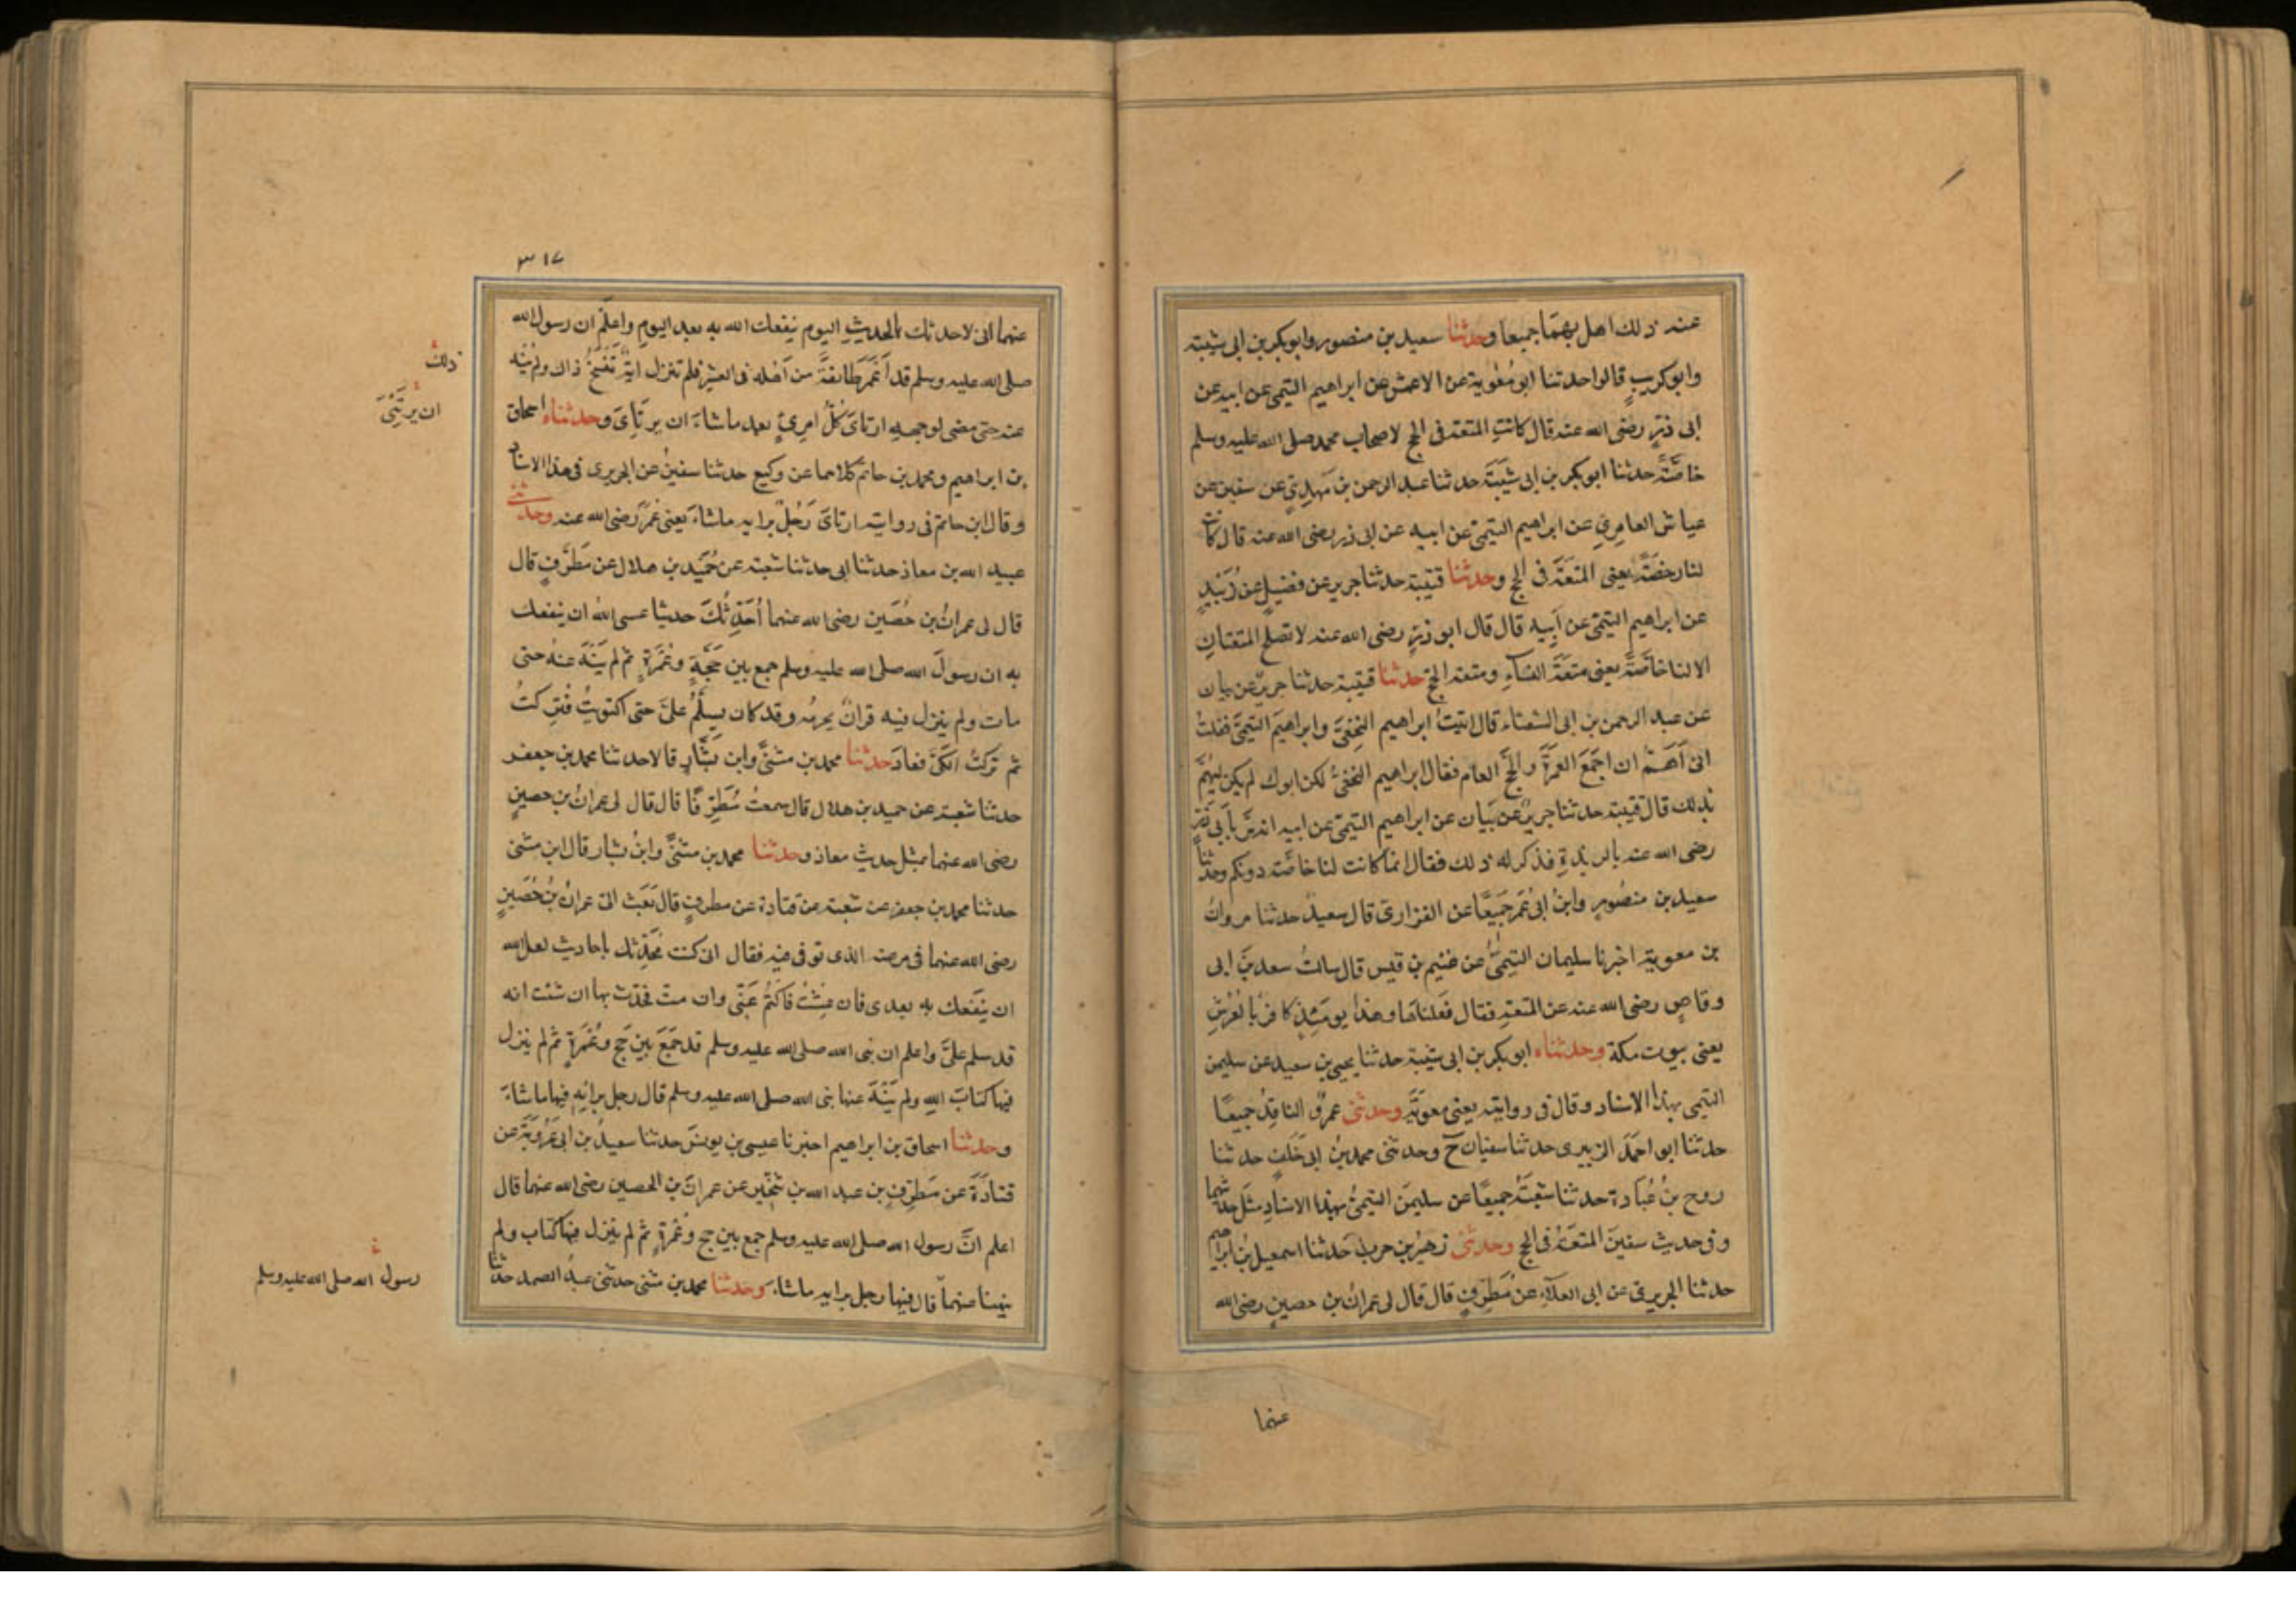 عند ذلك اهل بهما جميعا وحدثنا سعيد بن منصور وابو بكر بن ابى شيبة
وابو كريب قالوا حدثنا ابو معوية عن الاعمش عن ابراهيم التيمى عن ابيه عن
ابى ذر رضى الله عنه قال كانت المتعة فى الحج لاصحاب محمد صلى الله عليه وسلم
خاصة حدثنا ابو بكر بن ابى شيبة حدثنا عبد الرحمن بن مهدى عن سفين عن
عياش العامرى عن ابراهيم التيمى عن ابيه عن ابى ذر رضى الله عنه قال كانت
لنا رخصة يعنى المتعة فى الحج وحدثنا قتيبة حدثنا جرير عن فضيل عن زبيد
عن ابراهيم التيمى عن ابيه قال قال ابو ذر رضى الله عنه لا تصلح المتعتان
الا لنا خاصة يعنى متعة النساء ومتعة الحج حدثنا قتيبة حدثنا جرير عن بيان
عن عبد الرحمن بن ابى الشعثاء قال اتيت ابراهيم النخعى وابراهيم التيمى فقلت
انى اهم ان اجمع العمرة والحج العام فقال ابراهيم النخعى لكن ابوك لم يكن ليهم
بذلك قال قتيبة حدثنا جرير عن بيان عن ابراهيم التيمى عن ابيه انه مر بابى ذر
رضى الله عنه بالربذة فذكر له ذلك فقال انما كانت لنا خاصة دونكم وحدثنا
سعيد بن منصور وابن ابى عمر جميعا عن الفزارى قال سعيد حدثنا مروان
بن معوية اخبرنا سليمان التيمى عن غنيم بن قيس قال سالت سعد بن ابى
وقاص رضى الله عنه عن المتعة فقال فعلناها وهذا يومئذ كافر بالعرش
يعنى بيوت مكة وحدثناه ابو بكر بن ابى شيبة حدثنا يحيى بن سعيد عن سليمن
التيمى بهذا الاسناد وقال فى روايته يعنى معوية وحدثنى عمرو الناقد جميعا
حدثنا ابو احمد الزبيرى حدثنا سفيان ح وحدثنى محمد بن ابى خلف حدثنا
روح بن عبادة حدثنا شعبة جميعا عن سليمن التيمى بهذا الاسناد مثل حديثهما
وفى حديث سفين المتعة فى الحج وحدثنى زهير بن حرب حدثنا اسمعيل بن ابراهيم
حدثنا الجريرى عن ابى العلاء عن مطرف قال قال لى عمران بن حصين رضى الله
عنهما
٣١٧
عنهما انى لاحدثك بالحديث اليوم ينفعك الله به بعد اليوم واعلم ان رسول الله
صلى الله عليه وسلم قد اعمر طائفة من اهله فى العشر فلم تنزل اية تنسخ ذاك ولم ينه
عنه حتى مضى لوجهه ارتاى كل امرئ بعد ماشاء ان يرتاى وحدثناه اسحاق
بن ابراهيم ومحمد بن حاتم كلاهما عن وكيع حدثنا سفين عن الجريرى فى هذا الاسناد
وقال ابن حاتم فى روايته ارتاى رجل برايه ماشاء يعنى عمر رضى الله عنه وحدثنى
عبيد الله بن معاذ حدثنا ابى حدثنا شعبة عن حميد بن هلال عن مطرف قال
قال لى عمران بن حصين رضى الله عنهما احدثك حديثا عسى الله ان ينفعك
به ان رسول الله صلى الله عليه وسلم جمع بين حجة وعمرة ثم لم ينه عنه حتى
مات ولم ينزل فيه قران يحرمه وقد كان يسلم على حتى اكتويت فتركت
ثم تركت الكى فعاد حدثنا محمد بن مثنى وابن بشار قالا حدثنا محمد بن جعفر
حدثنا شعبة عن حميد بن هلال قال سمعت مطرفا قال قال لى عمران بن حصين
رضى الله عنهما بمثل حديث معاذ وحدثنا محمد بن مثنى وابن بشار قال ابن مثنى
حدثنا محمد بن جعفر عن شعبة عن قتادة عن مطرف قال بعث الى عمران بن حصين
رضى الله عنهما فى مرضه الذى توفى فيه فقال انى كنت محدثك باحاديث لعل الله
ان ينفعك به بعدى فان عشت فاكتم عنى وان مت فحدث بها ان شئت انه
قد سلم على واعلم ان نبى الله صلى الله عليه وسلم قد جمع بين حج وعمرة ثم لم ينزل
فيها كتاب الله ولم ينه عنها نبى الله صلى الله عليه وسلم قال رجل برائه فيها ماشاء
وحدثنا اسحاق بن ابراهيم اخبرنا عيسى بن يونس حدثنا سعيد بن ابى عروبة عن
قتادة عن مطرف بن عبد الله بن شخير عن عمران بن الحصين رضى الله عنهما قال
اعلم ان رسول الله صلى الله عليه وسلم جمع بين حج وعمرة ثم لم ينزل فيها كتاب ولم
ينهنا عنهما قال فيها رجل برايه ماشاء وحدثنا محمد بن مثنى حدثنى عبد الصمد حدثنا
ذلك
ان يرتئى
رسول الله صلى الله عليه وسلم